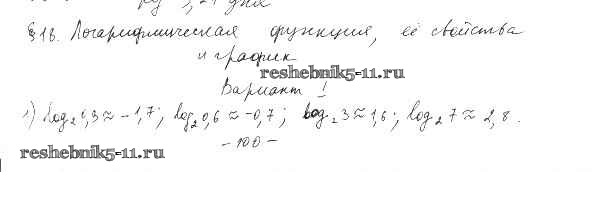 §18. Логарифмическая функция, её свойства
и график
reshebnik5-11.ru
Вариант I
1) log₂0,3 ≈ -1,7; log₂0,6 ≈ -0,7; log₂3 ≈ 1,6; log₂7 ≈ 2,8.
-100-
reshebnik5-11.ru